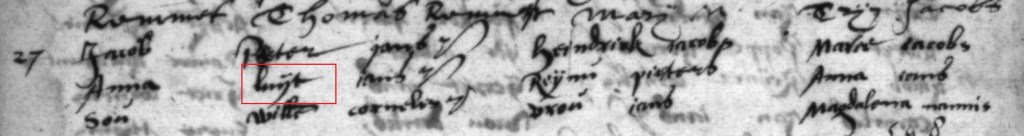 Remmet Thomas Remmet Mary Tryn Jacobs
27 Jacob Pieter jans Heindrick jacobs Marie jacobs
Anna luyt jans Reym pieters Anna jans
Son Wille cornelis vrou jans Magdalena nannis